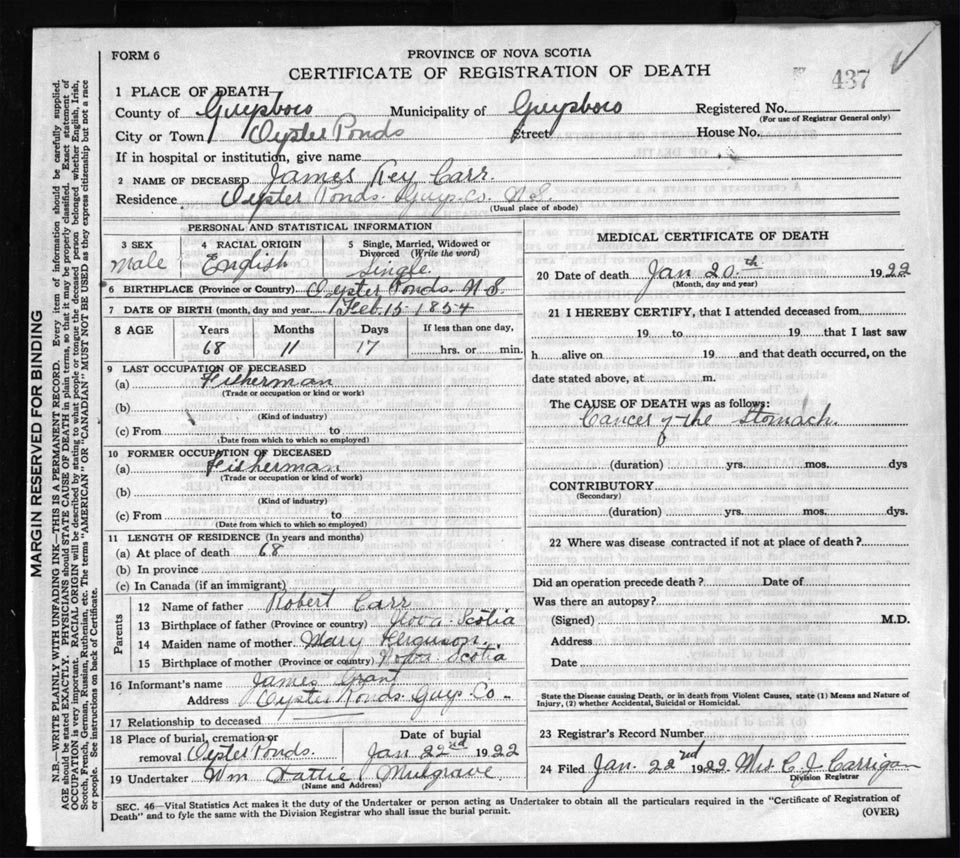 FORM 6
PROVINCE OF NOVA SCOTIA
CERTIFICATE OF REGISTRATION OF DEATH
437
1 PLACE OF DEATH
County of Guysboro Municipality of Guysboro Registered No.
(For use of Registrar General only)
City or Town Oyster Ponds Street House No.
If in hospital or institution, give name
2 NAME OF DECEASED James Key Carr.
Residence Oyster Ponds Guys. Co. N.S.
(Usual place of abode)
PERSONAL AND STATISTICAL INFORMATION
3 SEX 4 RACIAL ORIGIN 5 Single, Married, Widowed or Divorced (Write the word)
Male English Single.
6 BIRTHPLACE (Province or Country) Oyster Ponds N S.
7 DATE OF BIRTH (month, day and year) Feb. 15 1854
8 AGE Years Months Days If less than one day,
68 11 17 hrs. or min.
9 LAST OCCUPATION OF DECEASED
(a) Fisherman
(Trade or occupation or kind or work)
(b)
(Kind of industry)
(c) From to
(Date from which to which so employed)
10 FORMER OCCUPATION OF DECEASED
(a) Fisherman
(Trade or occupation or kind of work)
(b)
(Kind of industry)
(c) From to
(Date from which to which so employed)
11 LENGTH OF RESIDENCE (In years and months)
(a) At place of death 68
(b) In province
(c) In Canada (if an immigrant)
Parents
12 Name of father Robert Carr
13 Birthplace of father (Province or country) Nova Scotia
14 Maiden name of mother Mary Ferguson.
15 Birthplace of mother (Province or country) Nova Scotia
16 Informant's name James Grant
Address Oyster Ponds Guys Co -
17 Relationship to deceased
18 Place of burial, cremation or removal Oyster Ponds. Date of burial Jan 22nd 1922
19 Undertaker Wm Hattie Mulgrave
(Name and Address)
MEDICAL CERTIFICATE OF DEATH
20 Date of death Jan 20th 1922
(Month, day and year)
21 I HEREBY CERTIFY, that I attended deceased from
19 to 19 that I last saw
h alive on 19 and that death occurred, on the
date stated above, at m.
The CAUSE OF DEATH was as follows:
Cancer of the Stomach.
(duration) yrs. mos. dys
CONTRIBUTORY
(Secondary)
(duration) yrs. mos. dys.
22 Where was disease contracted if not at place of death?
Did an operation precede death? Date of
Was there an autopsy?
(Signed) M.D.
Address
Date
State the Disease causing Death, or in death from Violent Causes, state (1) Means and Nature of
Injury, (2) whether Accidental, Suicidal or Homicidal.
23 Registrar's Record Number
24 Filed Jan. 22nd 1922 Mrs. C J Carrigan
Division Registrar
SEC. 46—Vital Statistics Act makes it the duty of the Undertaker or person acting as Undertaker to obtain all the particulars required in the "Certificate of Registration of
Death" and to fyle the same with the Division Registrar who shall issue the burial permit. (OVER)
MARGIN RESERVED FOR BINDING
N.B.—WRITE PLAINLY WITH UNFADING INK—THIS IS A PERMANENT RECORD. Every item of information should be carefully supplied.
AGE should be stated EXACTLY. PHYSICIANS should STATE CAUSE OF DEATH in plain terms, so that it may be properly classified. Exact statement of
OCCUPATION is very important. RACIAL ORIGIN will be described by stating to what people or tongue the deceased person belonged whether English, Irish,
Scotch, French, German, Russian, Ruthenian, etc. The terms "AMERICAN" or "CANADIAN" MUST NOT BE USED as they express citizenship but not a race
or people. See instructions on back of Certificate.